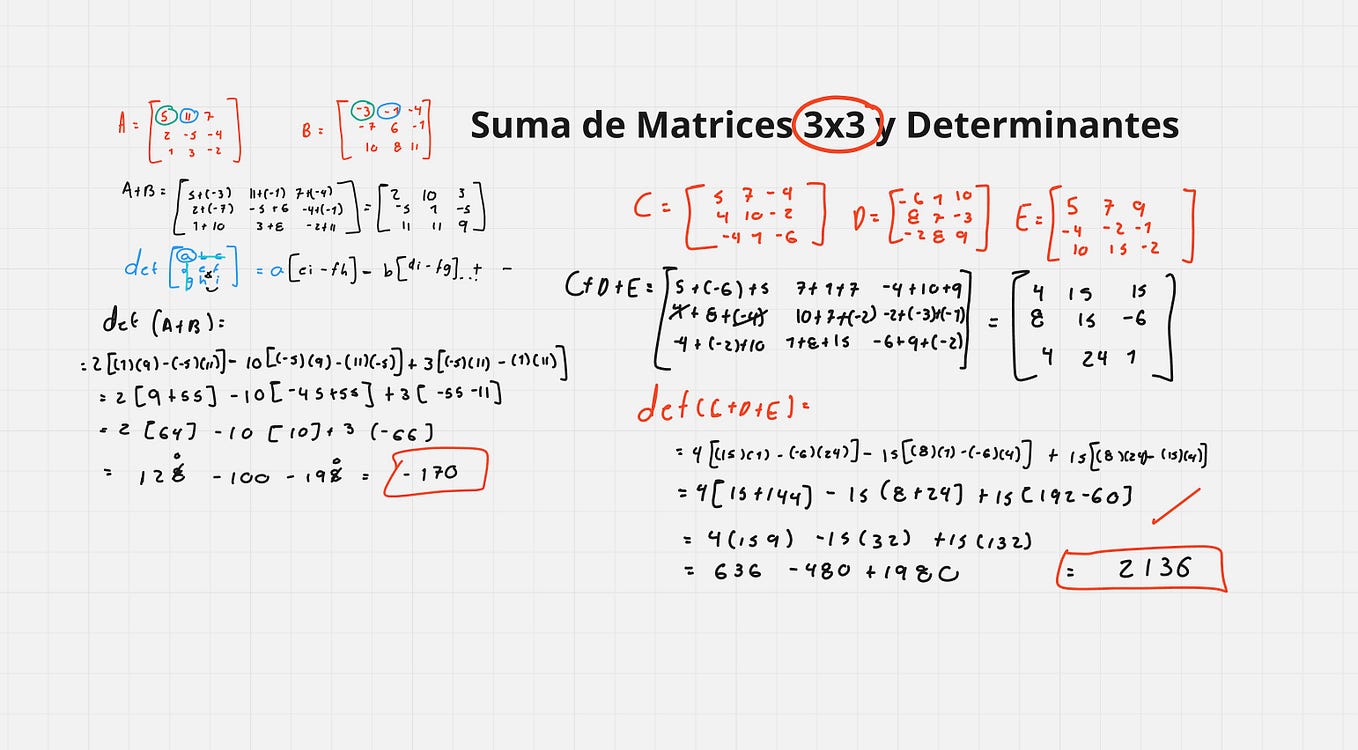 Suma de Matrices 3x3 y Determinantes
A = [ 5 11 7
2 -5 -4
1 3 -2 ]
B = [ -3 -1 -4
-7 6 -1
10 8 11 ]
A+B = [ 5+(-3) 11+(-1) 7+(-4)
2+(-7) -5+6 -4+(-1)
1+10 3+8 -2+11 ] = [ 2 10 3
-5 1 -5
11 11 9 ]
det [ a b c
d e f
g h i ] = a[ei-fh] - b[di-fg] ..+ -
det (A+B) =
= 2[(1)(9)-(-5)(11)] - 10[(-5)(9)-(11)(-5)] + 3[(-5)(11)-(1)(11)]
= 2[9+55] -10[-45+55] +3[-55-11]
= 2[64] -10[10] + 3(-66]
= 128 -100 -198 = -170
C = [ 5 7 -4
4 10 -2
-4 1 -6 ]
D = [ -6 1 10
8 7 -3
-2 8 9 ]
E = [ 5 7 9
-4 -2 -1
10 15 -2 ]
C+D+E = [ 5+(-6)+5 7+1+7 -4+10+9
4+8+(-4) 10+7+(-2) -2+(-3)+(-1)
-4+(-2)+10 1+8+15 -6+9+(-2) ] = [ 4 15 15
8 15 -6
4 24 1 ]
det(C+D+E) =
= 4[(15)(1)-(-6)(24)] - 15[(8)(1)-(-6)(4)] + 15[(8)(24)-(15)(4)]
= 4[15+144] - 15(8+24] +15[192-60]
= 4(159) -15(32) +15(132)
= 636 -480 +1980
= 2136